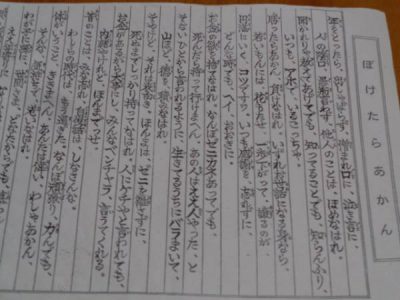 ぼけたらあかん
年をとったら、出しゃばらず、憎まれ口に、泣き言に、
人のかげ口、愚痴言わず、他人のことは、ほめなはれ。
聞かれりゃ教えてあげてでも、知ってることでも、知らんふり、
いつも、アホでいるこっちゃ。
勝ったらあかん、負けなはれ、いずれお世話になる身なら、
若いもんには、花持たせ、一歩さがって、譲るのが
円満にいく、コツですわ。いつも感謝を、忘れずに、
どんな時でも、へえ、おおきに。
お金の欲を、捨てなはれ、なんぼゼニカネあってても、
死んだら持って行けまへん。あの人は、ええ人やった、と
そないひとから、言われるように、生きてるうちにバラまいて、
山ほど、徳を、積みなはれ。
そやけど、それは表向き、ほんまは、ゼニを、離さずに、
死ぬまでしっかり、持ってなはれ。人にケチやと言われても、
お金があるから、大事にし、みんな、ベンチャラ、言うてくれる。
内緒やけれど、ほんまでっせ。
昔のことは、みな忘れ、自慢話は、しなはんな、
わしらの時代は、もう過ぎた、なんぼ頑張り、力んでも、
体がいうこと、ききまへん、あんたはえらい、わしゃあかん、
そんな気持ちで、おりなはれ。
わが子に孫に、世間さま、どなたからでも、慕